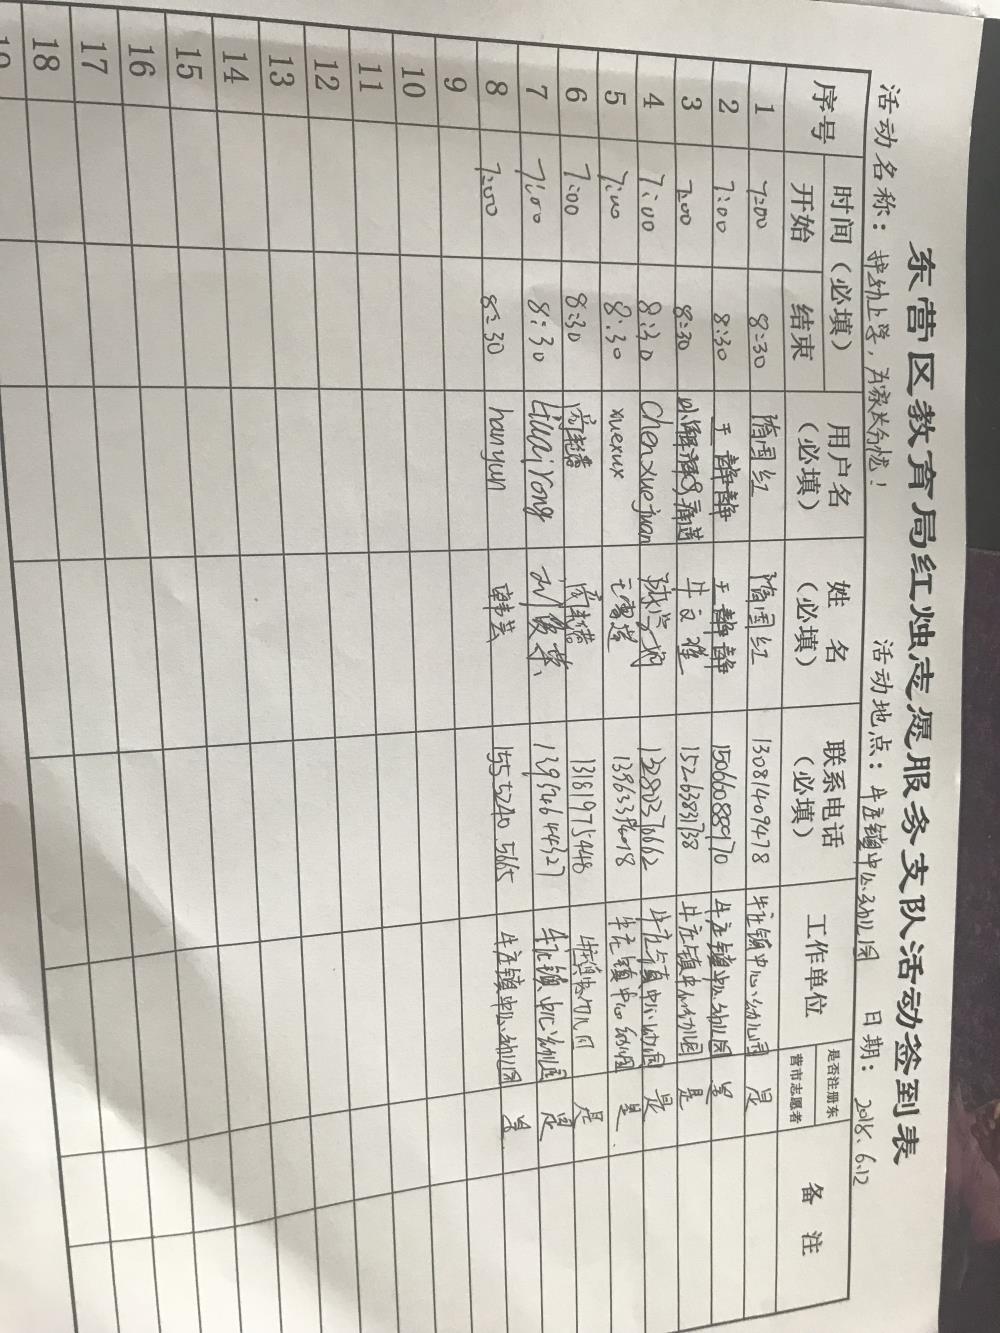 东营区教育局红烛志愿服务支队活动签到表
活动名称：护幼上学，为家长分忧！ 活动地点：牛庄镇中心幼儿园 日期：2018.6.12
序号 时间（必填） 用户名（必填） 姓名（必填） 联系电话（必填） 工作单位 是否注册东营市志愿者 备注
开始 结束
1 7:00 8:30 隋国红 隋国红 13081409478 牛庄镇中心幼儿园 是
2 7:00 8:30 王静静 王静静 15066088970 牛庄镇中心幼儿园 是
3 7:00 8:30 牛文雅 15263831738 牛庄镇中心幼儿园 是
4 7:00 8:30 Chenxuejuan 陈学娟 13280376662 牛庄镇中心幼儿园 是
5 7:00 8:30 xuexux 牛庄镇中心幼儿园 是
6 7:00 8:30 13181975448 是
7 7:00 8:30 13954644327 牛庄镇中心幼儿园 是
8 7:00 8:30 hanyun 韩芸 15552405665 牛庄镇中心幼儿园 是
9
10
11
12
13
14
15
16
17
18